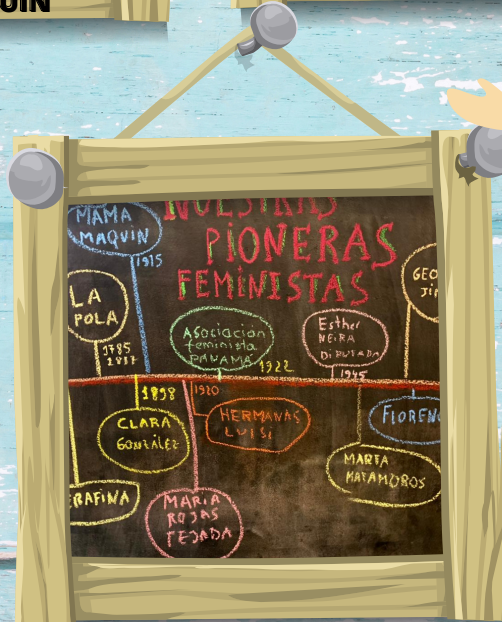 UIN
NUESTRAS
PIONERAS
FEMINISTAS
MAMA
MAQUIN
1915
LA
POLA
1785
1817
Asociación
feminista
PANAMÁ
1922
Esther
NEIRA
DIPUTADA
1945
GEO
Jim
1898
CLARA
GONZÁLEZ
1920
HERMANAS
LUISI
FLOREN
MARTA
MATAMOROS
RAFINA
MARÍA
ROJAS
TEJADA